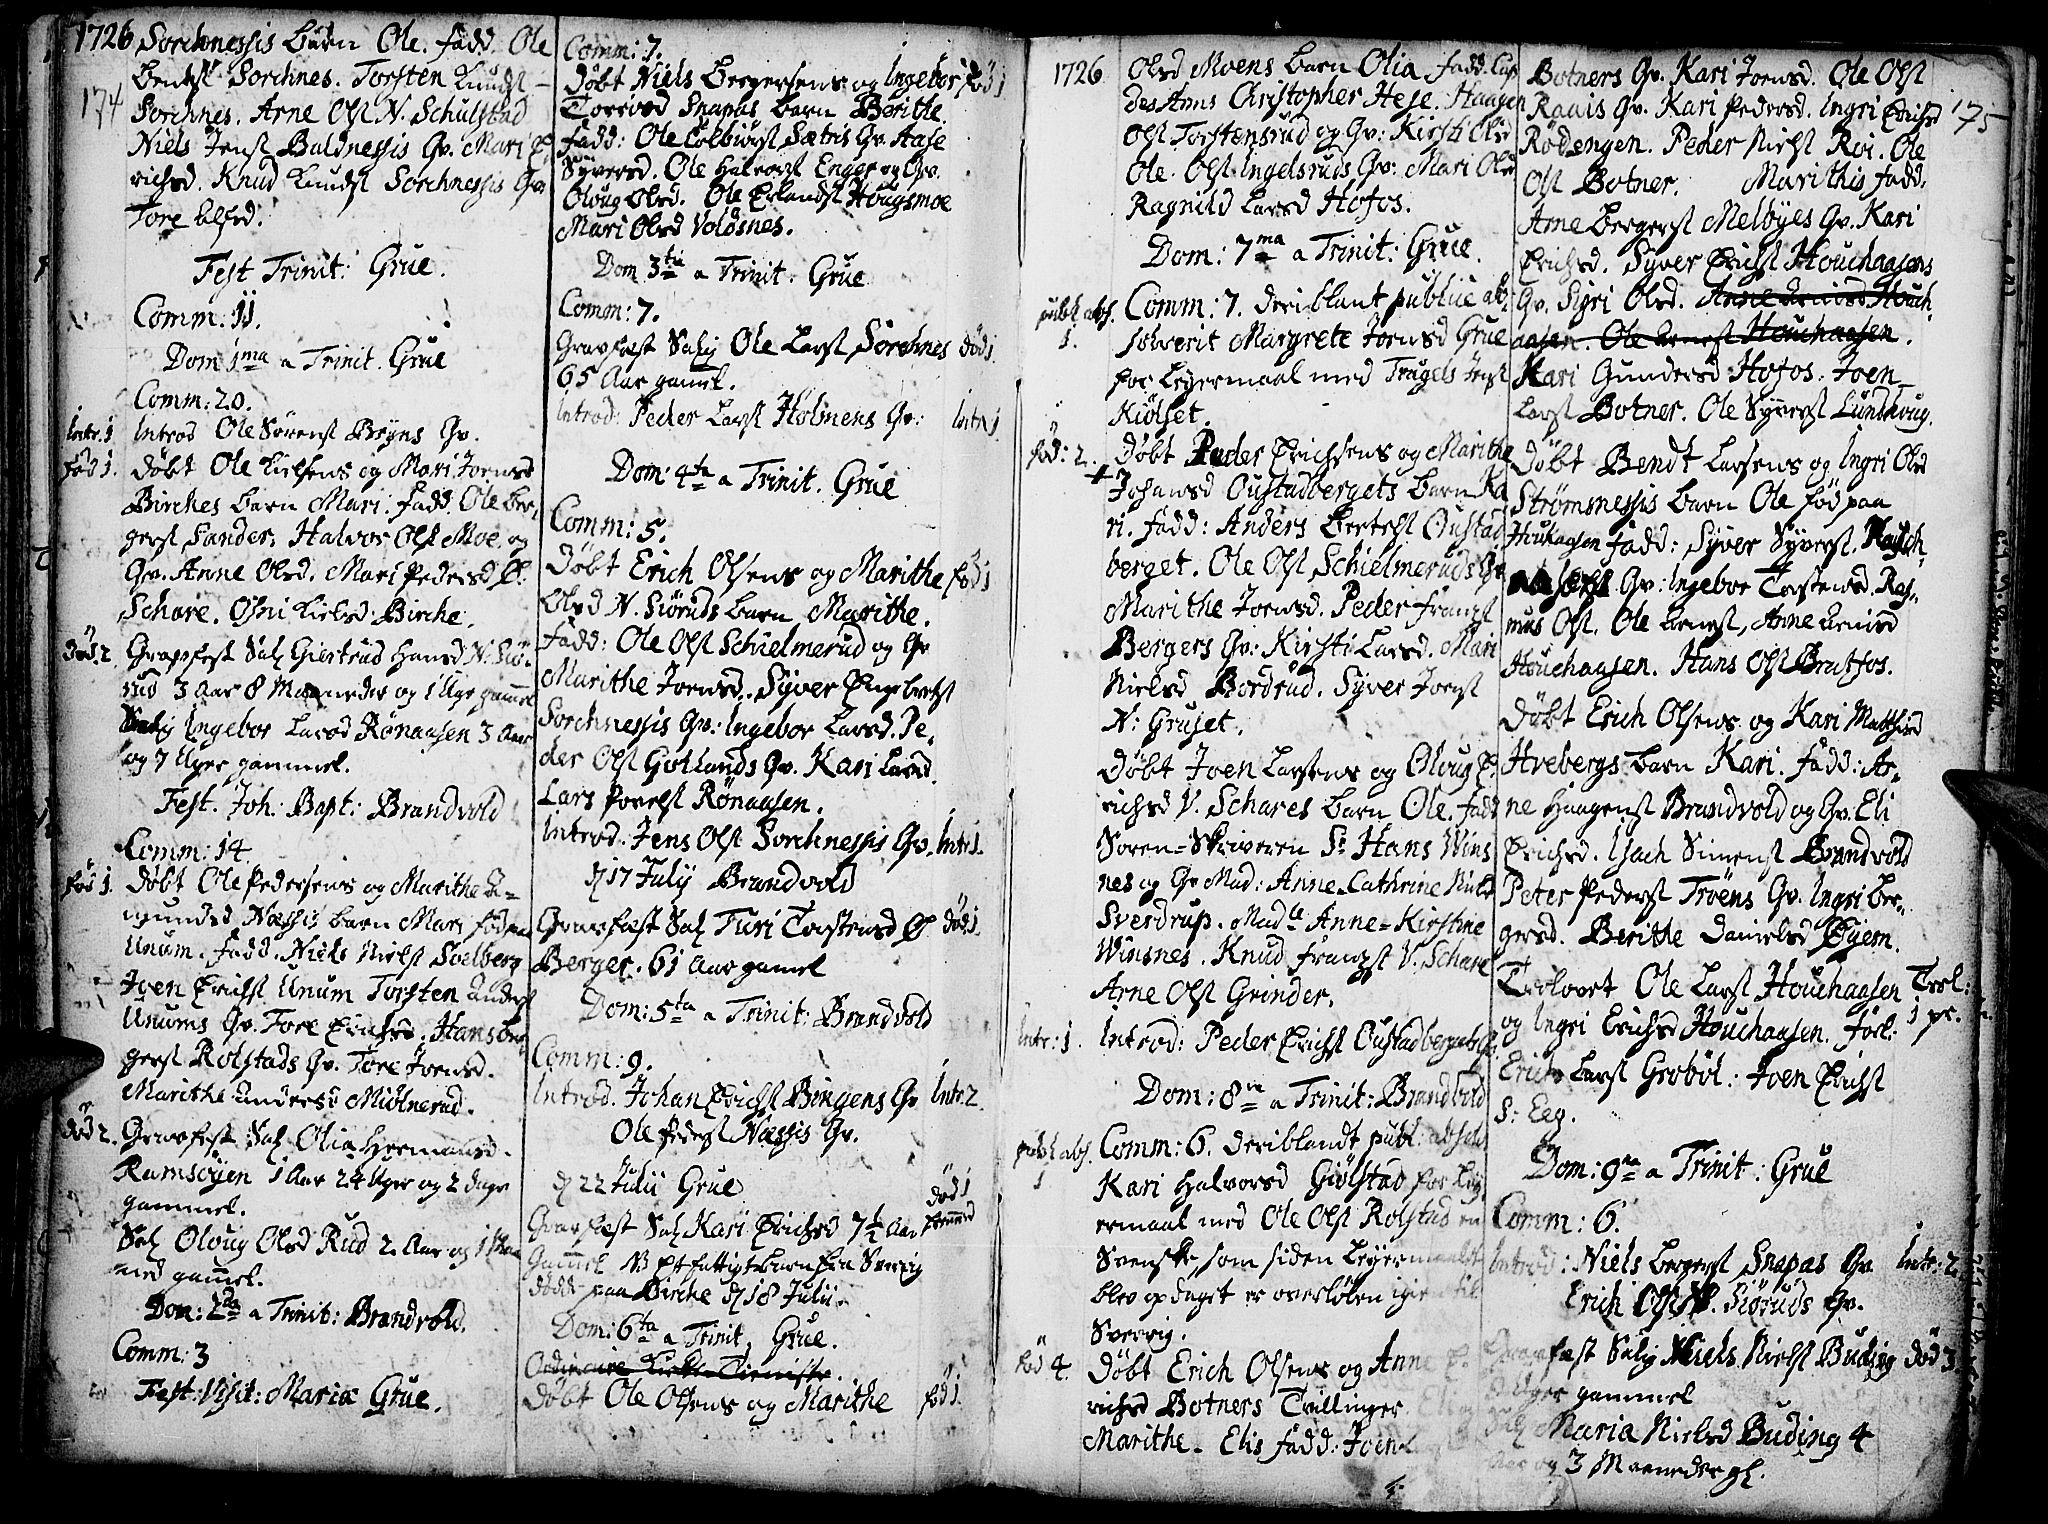 1726
174
Sorchnessis barn Ole. fadd. Ole
bentst Sorchnes. Torsten Knudst
Sorchnes. Arne Olst N. Schulstad
Niels Jenst Baldnessis Qv. Mari E,
richsd. Knud Knudst Sorchnessis Qv.
Tore
Fest Trinit: Grue.
Comm: 11.
Dom 1ma a Trinit. Grue
Comm: 20.
Intr. 1
Introd Ole Sörenst Bryns Qv.
fød 1.
Døbt Ole Kielsens og Mari Joensd
Birches barn Mari. fadd. Ole ber,
gerst Sander. Halvor Olst Moe og
Qv. Anne Olsd. Mari Pedersd Ø.
Schare. Osni Kielsd Birche.
død. 2
Gravfest Sal Giertrud Hansd N. Siö,
rud 3 Aar 8 Maaneder og 1 Uge gammel
Salig Ingebor Larsd Rønaasen 3 Aar
og 7 Uger gammel.
Fest. Joh: Bapt: Brandvold
Comm: 14
fød 1.
Døbt Ole Pedersens og Marithe A=
mundsd Næssis barn Mari fød paa
Unum. fadd. Niels Nielst Solberg
Joen Erichst Unum Torsten Anderst
Unums Qv. Tore Erichsd. Hans ber,
gerst Rolstads Qv. Tore Joensd.
Marithe Andersd Miølnerud.
død 2.
Gravfest Sal Olia Hermansd.
Ramsøyen 1 Aar 24 Uger og 2 dage
gammel.
Sal Oloug Olsd Rud 2 Aar og 1 Maa
ned gammel.
Dom: 2da a Trinit: Brandvold.
Comm: 3
Fest: Visit: Mariæ Grue.
Comm: 7.
Døbt Niels bergersens og Ingebor
fød 1
Torersd Snapas barn Berithe.
fadd: Ole Colbiörst Sætris Qv. Aase
Syversd. Ole Halvorst Enger og Qv.
Oloug Olsd. Ole Erlandst Hougsmoe
Mari Olsd Volösnes.
Dom 3tia a Trinit. Grue
Comm: 7.
Gravfæst Salig Ole Larst Sorchnes
død 1
65 Aar gamel.
Introd: Peder Larst Holmens Qv:
Intr 1
Dom: 4ta a Trinit. Grue
Comm: 5.
Døbt Erich Olsens og Marithe
fød 1
Olsd N. Siöruds barn Marithe.
fadd: Ole Olst Schielmerud og Qv
Marithe Joensd. Syver Engebretst
Sorchnessis Qv: Ingebor Larsd. Pe,
der Olst Gotlands Qv. Kari Larsd.
Lars Povelst Rönaasen.
Introd. Jens Olst Sorchnessis Qv.
Intr 1.
d 17 July Brandvold
Gravfæst Sal Turi Torstensd Ø
død 1.
Berger. 61 Aar gamel
Dom: 5ta a Trinit: Brandvold
Comm: 9.
Introd. Johan Erichst Bingens Qv
Intr 2.
Ole Pederst Næssis Qv.
d 22 Julii Grue
død 1
Gravfæst Sal Kari Erichsd 7½ Aar
Gammel NB Et fattigt barn fra Sverrig
død paa Birche d 18 Julii.
Dom: 6ta a Trinit. Grue.
Ordinaire Kirke Tieniste.
Døbt Ole Olsens og Marithe
fød 1.
1726
175
Olsd Moens barn Olia fadd. Cap
des Arms Christopher Hese. Haagen
Olst Torstensrud og Qv: Kirsti Olsd
Ole Olst Ingelsruds Qv: Mari Olsd
Ragnild Larsd Hofos.
Dom: 7ma a Trinit: Grue.
publ abs.
1.
Comm: 7. deriblant publice ab,
solverit Margrete Joensd Grue
for Leyermaal med Trugels Jenst
Kiölset.
fød: 2.
Døbt Peder Erichsens og Marithe
Johansd Oustadbergets barn Ka
ri. fadd: Anders bertelst Oustad
berget. Ole Olst Schielmeruds Qv
Marithe Joensd. Peder franzst
Bergers Qv: Kirsti Larsd. Mari
Nielsd Bordrud. Syver Joenst
N: Gruset.
Døbt Joen Larsens og Oloug E,
richsd V. Schares barn Ole. fadd
Soren=Skriveren Sr Hans Wins
nes og Qv Mad: Anne Cathrine
Sverdrup. Madle Anne=Kirstine
Winsnes. Knud franzst V. Schare
Arne Olst Grinder.
Intr: 1.
Introd: Peder Erichst Oustadbergets Qv.
Dom: 8va a Trinit: Brandvold
publ abs.
1
Comm: 6. deriblandt publ: absolv
Kari Halvorsd Giölstad for Ley,
ermaal med Ole Olst Rolstad en
Svenske, som siden Leyermaalet
blev opdaget er overløben igien til
Sverrig.
fød 4.
Døbt Erich Olsens og Anne E,
richsd Botners Tvillinger Eli og
Marithe. Elis fadd: Joen
Botners Qv. Kari Joensd. Ole Olst
Raais Qv. Kari Pedersd. Ingri Erichsd
Rødengen. Peder Nielst Roi. Ole
Olst Botner. Marithis fadd.
Arne bergerst Melbyes Qv. Kari
Erichsd. Syver Erichst Houchaasens
Qv. Sigri Olsd. Anne Arnisd Houch,
aasen. Ole Arnest Houchaasen.
Kari Gundersd Hofos. Joen
Larst Botner. Ole Syverst Lundhoug.
Døbt Bendt Larsens og Ingri Olsd
Strömsnessis barn Ole fød paa
Houchaasen fadd: Syver Syverst.
Qv: Ingebor Torstensd. Ras,
mus Olst. Ole Arnest, Anne Arnisd
Houchaasen. Hans Olst Bratfos.
Døbt Erich Olsens og Kari Matthisd
Hvebergs barn Kari. fadd: Ar,
ne Haagenst Brandvold og Qv. Eli
Erichsd. Isach Simenst Brandvold
Peter Pederst Troens Qv. Ingri ber,
gersd. Berithe Danielsd Øyern.
Trolovet Ole Larst Houchaasen
Trol:
1 pr.
og Ingri Erichsd Houchaasen. forl.
Erich Larst Grobøl. Joen Erichst
S: Eeg.
Dom: 9na a Trinit: Grue
Comm: 6.
Introd: Niels bergerst Snapas Qv
Intr: 2.
Erich Olst N. Siöruds Qv.
Gravfæst Salig Niels Nielst Buding
død 3
Uger gammel
Sal Maria Nielsd Buding 4
Aar og 3 Maaneder gl.